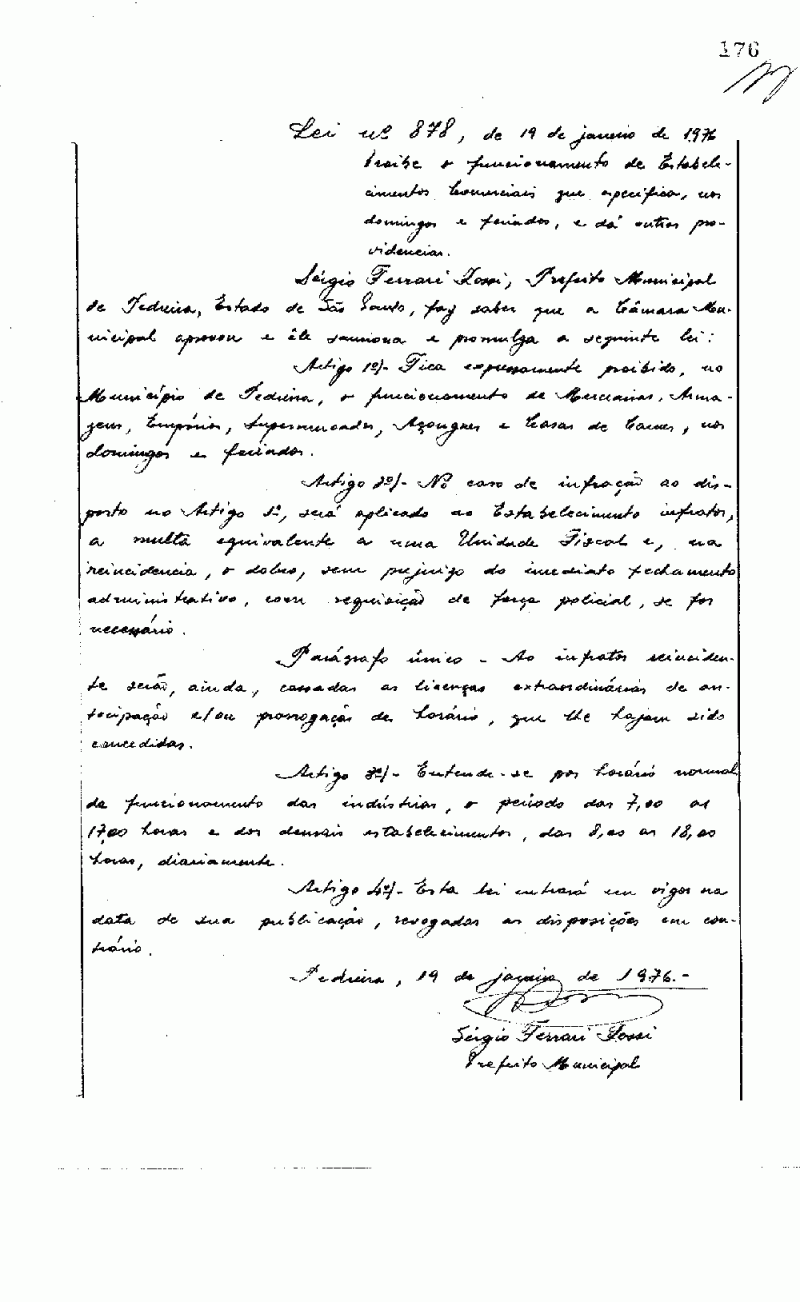 176
Lei nº 878, de 19 de janeiro de 1976
Proibe o funcionamento de Estabele-
cimentos Comerciais que especifica, nos
domingos e feriados, e dá outras pro-
videncias.
Sérgio Ferrari Rossi, Prefeito Municipal
de Pedreira, Estado de São Paulo, faz saber que a Câmara Mu-
nicipal aprovou e êle sanciona e promulga a seguinte lei:
Artigo 1º/- Fica expressamente proibido, no
Município de Pedreira, o funcionamento de Mercearias, Arma-
zens, Empórios, Supermercados, Açougues e Casas de Carnes, nos
domingos e feriados.
Artigo 2º/- No caso de infração ao dis-
posto no Artigo 1º, será aplicado ao Estabelecimento infrator,
a multa equivalente a uma Unidade Fiscal e, na
reincidencia, o dobro, sem prejuizo do imediato fechamento
administrativo, com requisição de força policial, se for
necessário.
Parágrafo único - Ao infrator reinciden-
te serão, ainda, cassadas as licenças extraordinárias de an-
tecipação e/ou prorrogação de horário, que lhe hajam sido
concedidas.
Artigo 3º/- Entende-se por horário normal
de funcionamento das indústrias, o período das 7,00 as
17,00 horas e dos demais estabelecimentos, das 8,00 as 18,00
horas, diariamente.
Artigo 4º/- Esta lei entrará em vigor na
data de sua publicação, revogadas as disposições em con-
trário.
Pedreira, 19 de janeiro de 1976.-
Sérgio Ferrari Rossi
Prefeito Municipal